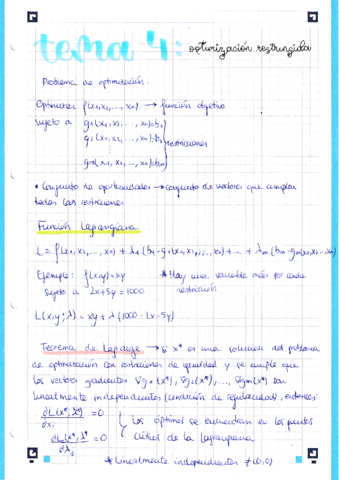 tema 4: optimización restringida
Problema de optimización.
Optimizar f(x₁,x₂,...,xₙ) → función objetivo
Sujeto a g₁(x₁,x₂,...,xₙ)=b₁
g₂(x₁,x₂,...,xₙ)=b₂ restricciones
⋮
gₘ(x₁,x₂,...,xₙ)=bₘ
• Conjunto de oportunidades → conjunto de valores que cumplan
todas las restricciones
Función Lagrangiana
L = f(x₁,x₂,...,xₙ) + λ₁(b₁-g₁(x₁,x₂,...,xₙ)) + ... + λₘ(bₘ-gₘ(x₁,x₂,...,xₙ)
Ejemplo: f(x,y)=xy * Hay una variable más por cada
Sujeto a 2x+5y=1000 restricción
L(x,y;λ) = xy + λ(1000-2x-5y)
Teorema de Lagrange → Si x* es una solución del problema
de optimización con restricciones de igualdad y se cumple que
los vectores gradientes ∇g₁(x*), ∇g₂(x*), ..., ∇gₘ(x*) son
linealmente independientes (condición de regularidad), entonces:
∂L(x*,λ*)/∂xᵢ = 0 Los óptimos se encuentran en los puntos
∂L(x*,λ*/∂λⱼ = 0 críticos de la Lagrangiana
* Linealmente independientes ≠ (0,0)